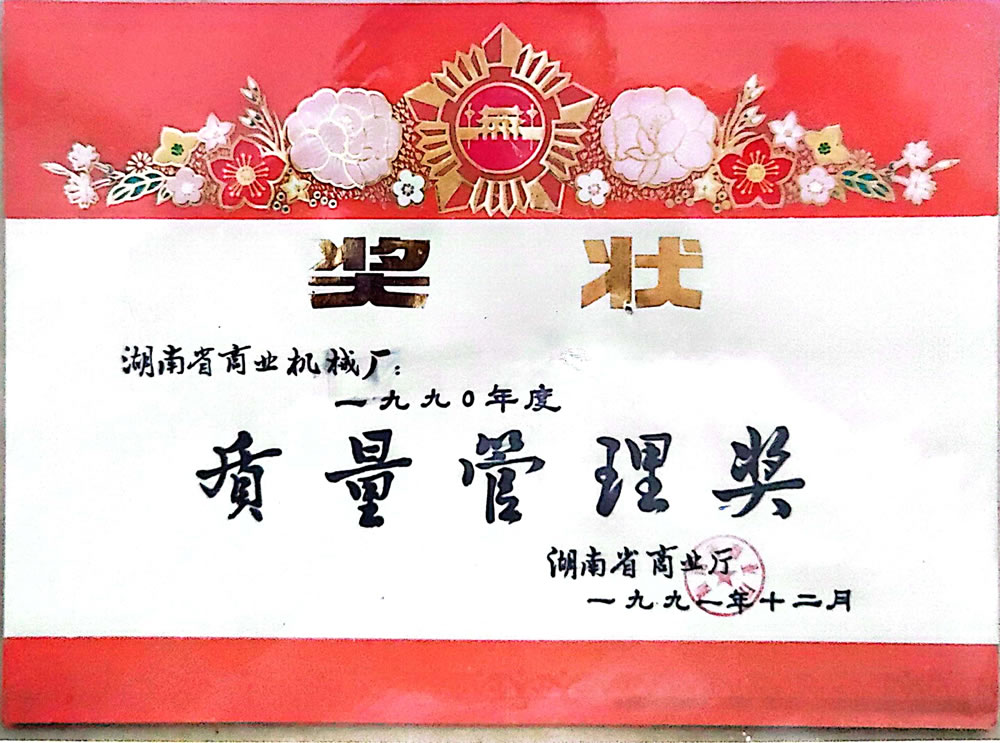 奖状
湖南省商业机械厂:
一九九〇年度
质量管理奖
湖南省商业厅
一九九一年十二月